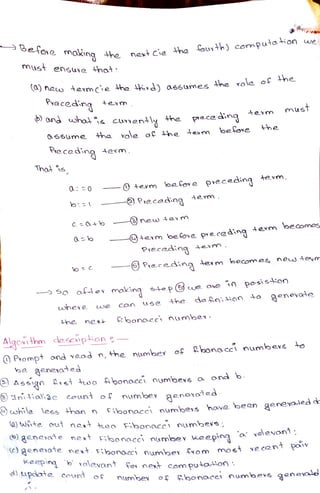 → Before making the next (ie the fourth) computation we
must ensure that:
(a) new term (ie the third) assumes the role of the
Preceding term.
b) and what is currently the preceding term must
assume the role of the term before the
Preceding term.
That is,
a:=0 ① term before preceding term.
b:=1 ② Preceding term.
c=a+b ③ new term
a=b ④ term before preceding term becomes
Preceding term.
b=c ⑤ Preceding term becomes new term
→ So after making step ⑤ we are in posistion
where we can use the definition to generate
the next fibonacci number.
Algorithm description:-
① Prompt and read n, the number of fibonacci numbers to
be generated
② Assign first two fibonacci numbers a and b.
③ Initialize count of number generated
④ while less than n fibonacci numbers have been generated d
a) Write out next two fibonacci numbers;
(b) generate next fibonacci number keeping 'a' relevant;
(c) generate next fibonacci number from most recent pair
keeping b relevant for next computation;
d) update count of number of fibonacci numbers generated